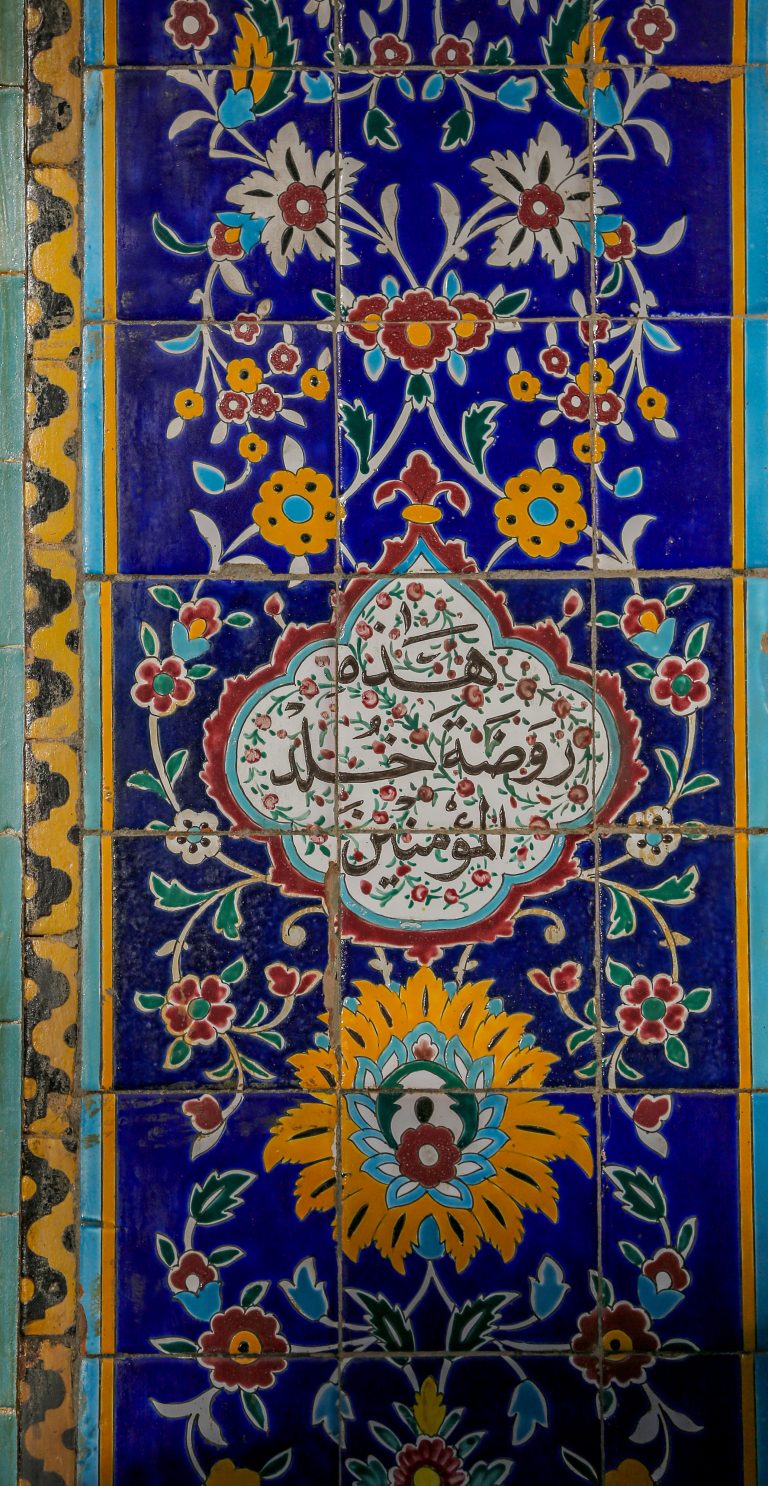 هَذِه
رَوْضَةُ خُلْدِ
المُؤْمنِيْنَ